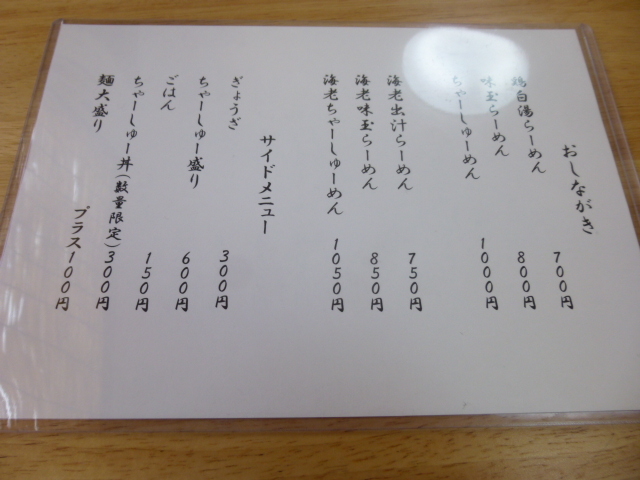 おしながき
鶏白湯らーめん 700円
味玉らーめん 800円
ちゃーしゅーめん 1000円
海老出汁らーめん 750円
海老味玉らーめん 850円
海老ちゃーしゅーめん 1050円
サイドメニュー
ぎょうざ 300円
ちゃーしゅー盛り 600円
ごはん 150円
ちゃーしゅー丼(数量限定)300円
麺大盛り プラス100円